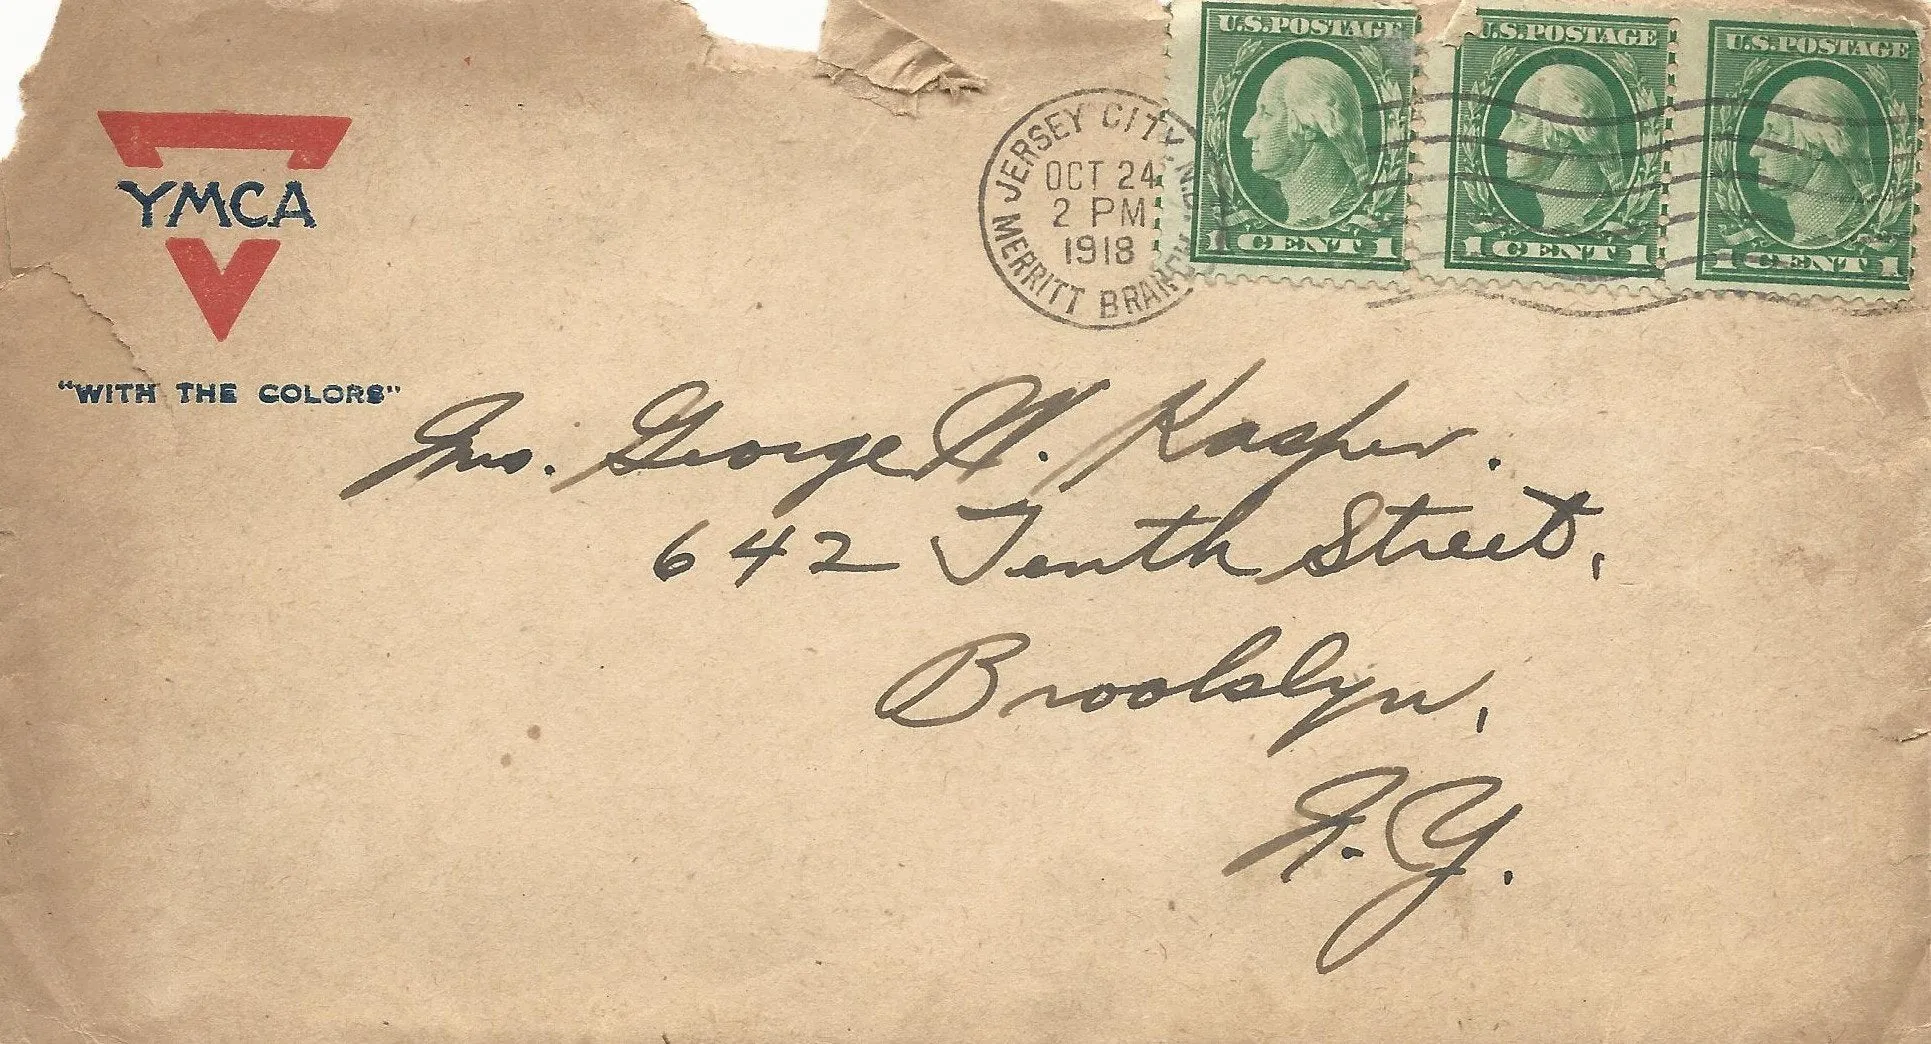 YMCA
"WITH THE COLORS"
JERSEY CITY, N.J.
OCT 24
2 PM
1918
MERRITT BRANCH
U.S.POSTAGE
1 CENT 1
U.S.POSTAGE
1 CENT 1
U.S.POSTAGE
1 CENT 1
Mrs. George W. Kasper.
642 Tenth Street,
Brooklyn,
N.Y.